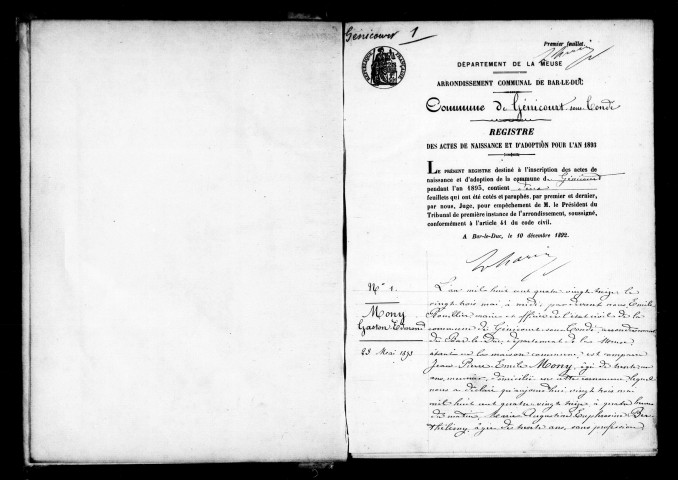 Génicourt 1
Premier feuillet.
DÉPARTEMENT DE LA MEUSE
ARRONDISSEMENT COMMUNAL DE BAR-LE-DUC
Commune de Génicourt sous Condé
REGISTRE
DES ACTES DE NAISSANCE ET D'ADOPTION POUR L'AN 1893
LE PRÉSENT REGISTRE destiné à l'inscription des actes de
naissance et d'adoption de la commune de Génicourt
pendant l'an 1893, contient
feuillets qui ont été cotés et paraphés, par premier et dernier,
par nous, Juge, pour empêchement de M. le Président du
Tribunal de première instance de l'arrondissement, soussigné,
conformément à l'article 41 du code civil.
A Bar-le-Duc, le 10 décembre 1892.
N° 1.
Mony
Gaston Edmond
23 Mai 1893
L'an mil huit cent quatre vingt treize le
vingt trois mai à midi, par devant nous Emile
maire et officier de l'état civil de la
commune de Génicourt sous Condé, arrondissement
de Bar-le-Duc, département de la Meuse
étant en la maison commune, est comparu
Jean Pierre Emile Mony, âgé de trente
ans, domicilié en cette commune, lequel
nous a déclaré qu'aujourd'hui vingt trois mai
mil huit cent quatre vingt treize, à quatre heures
du matin, Marie Augustine Euphrosine
âgée de trente ans, sans profession